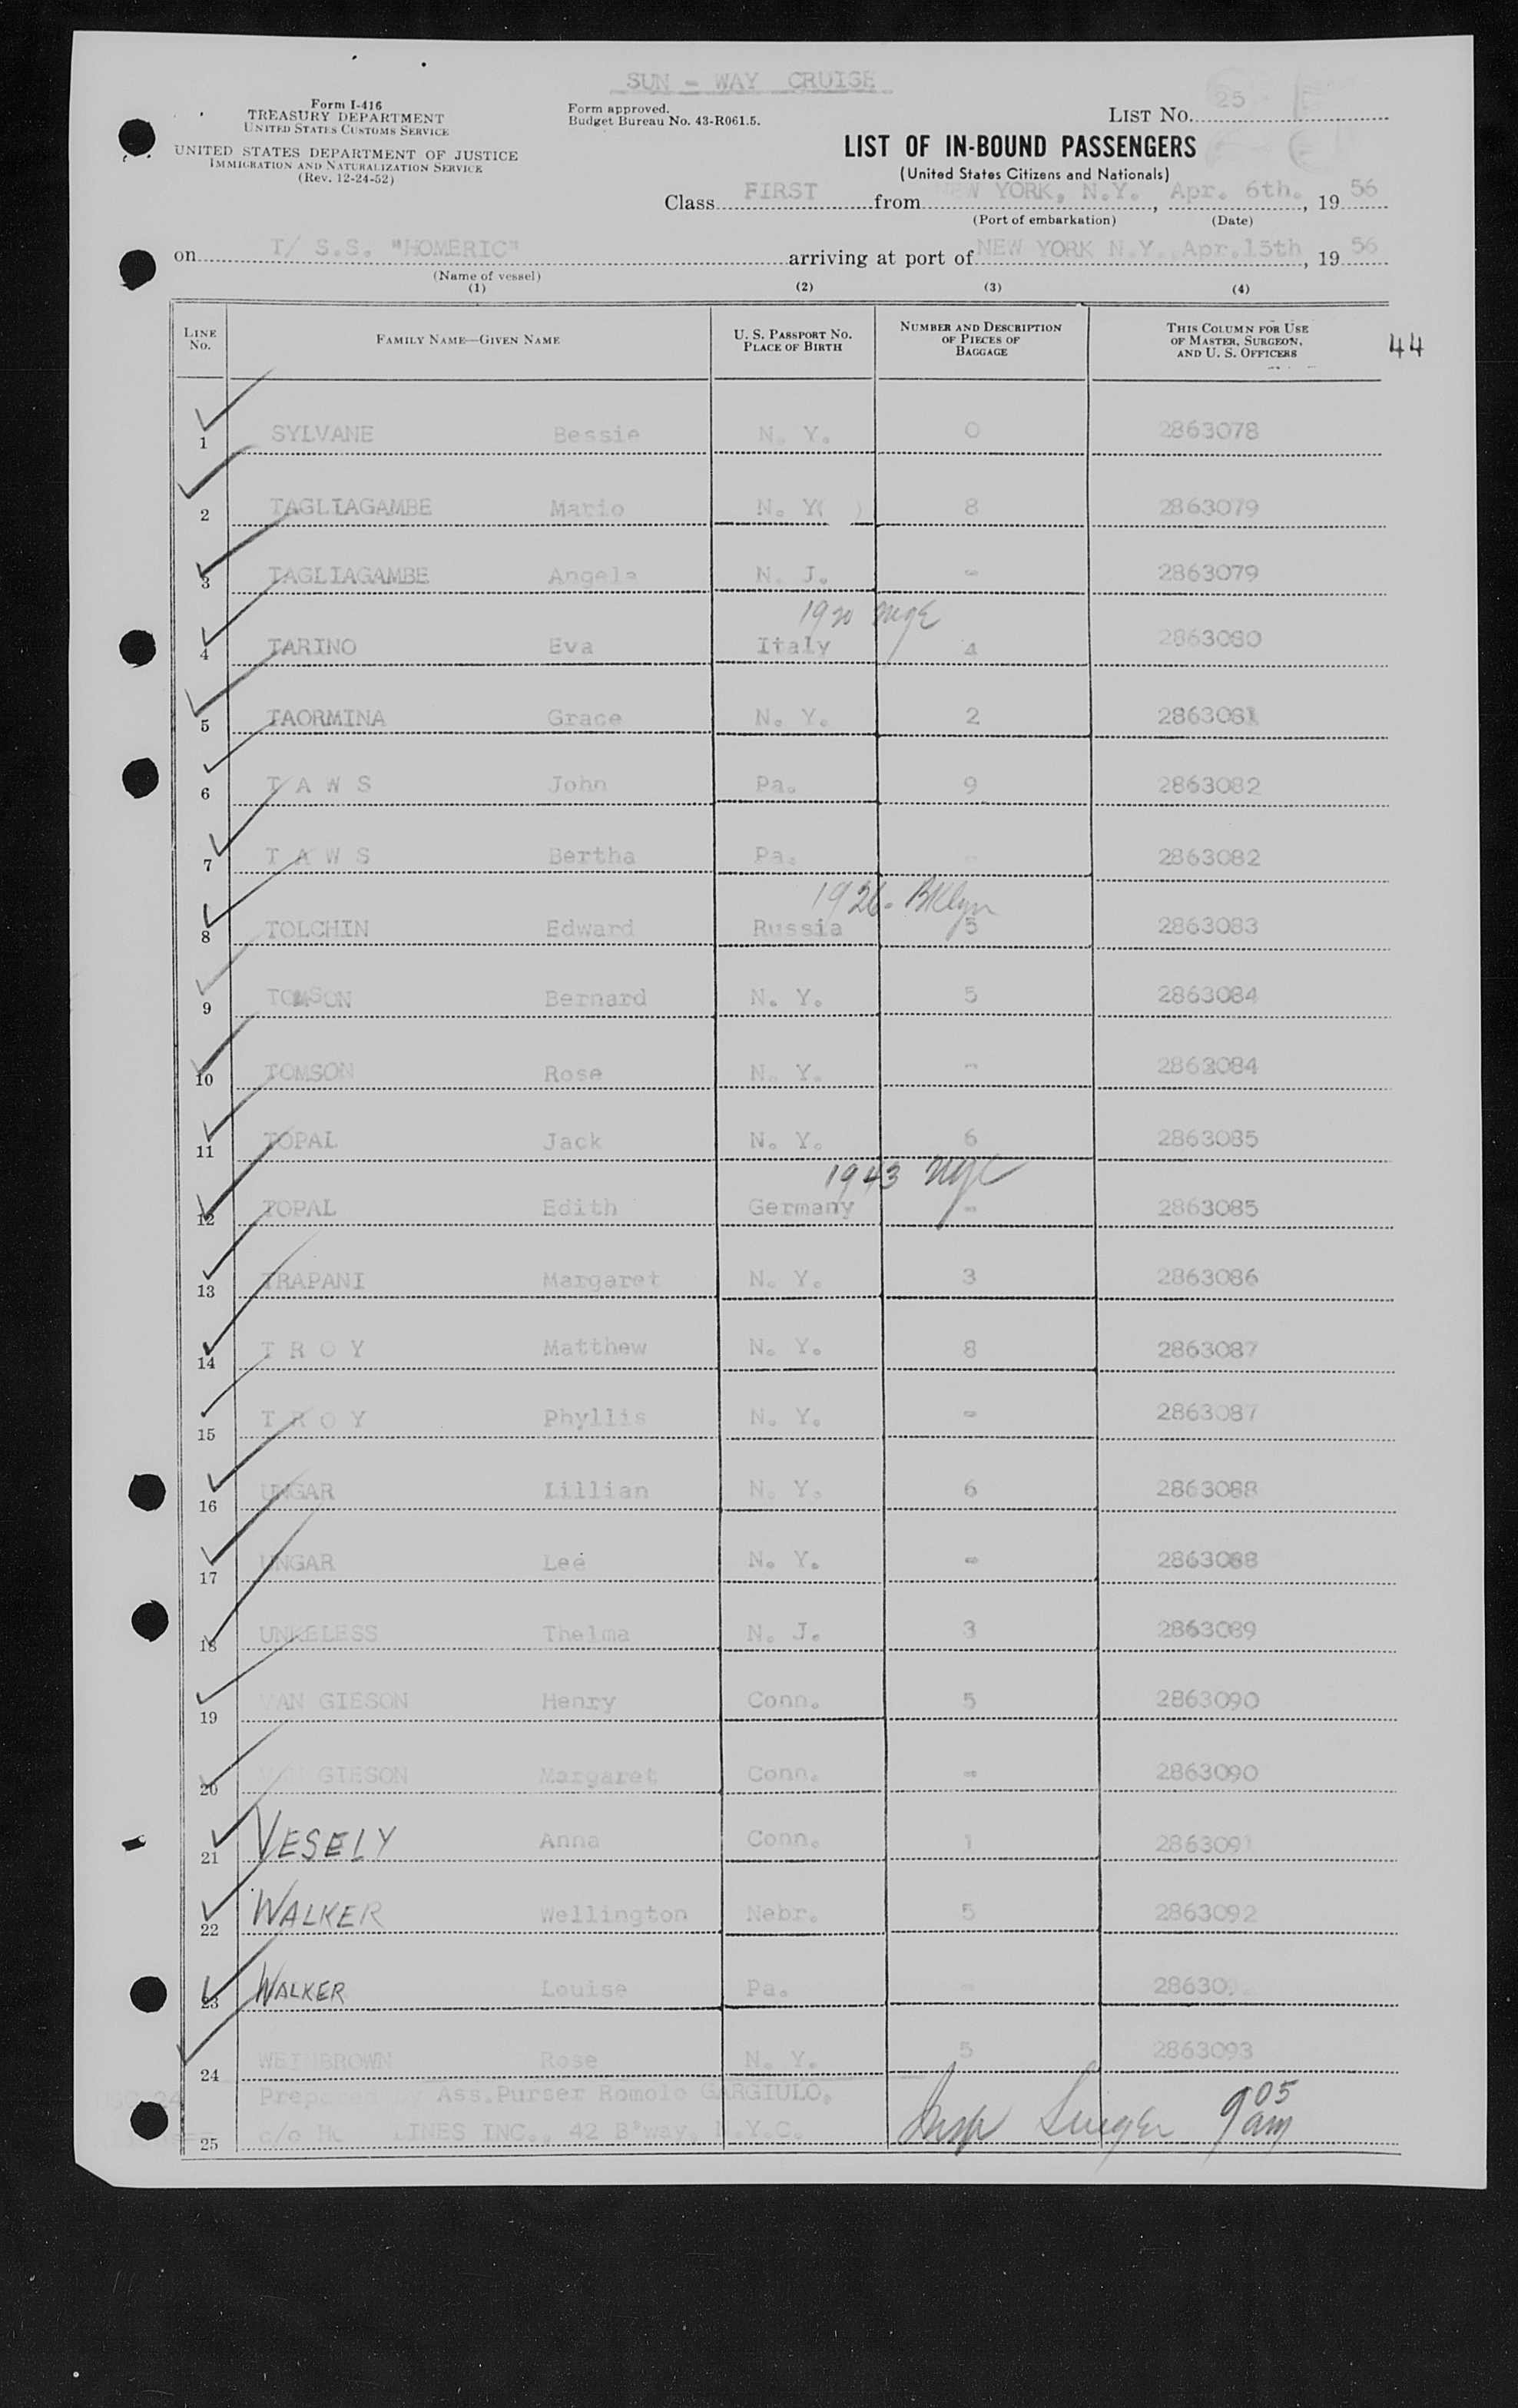 SUN - WAY CRUISE
Form I-416
TREASURY DEPARTMENT
UNITED STATES CUSTOMS SERVICE
UNITED STATES DEPARTMENT OF JUSTICE
IMMIGRATION AND NATURALIZATION SERVICE
(Rev. 12-24-52)
Form approved.
Budget Bureau No. 43-R061.5.
LIST NO. 25
LIST OF IN-BOUND PASSENGERS
(United States Citizens and Nationals)
Class FIRST from NEW YORK, N.Y. , Apr. 6th. , 19 56
(Port of embarkation) (Date)
on T/ S.S. "HOMERIC" arriving at port of NEW YORK N.Y. Apr.15th , 19 56
(Name of vessel)
(1) (2) (3) (4)
LINE NO. FAMILY NAME—GIVEN NAME U. S. PASSPORT NO. PLACE OF BIRTH NUMBER AND DESCRIPTION OF PIECES OF BAGGAGE THIS COLUMN FOR USE OF MASTER, SURGEON, AND U. S. OFFICERS 44
1 SYLVANE Bessie N. Y. 0 2863078
2 TAGLIAGAMBE Mario N. Y( ) 8 2863079
3 TAGLIAGAMBE Angela N. J. - 2863079
1920 NYC
4 TARINO Eva Italy 4 2863080
5 TAORMINA Grace N. Y. 2 2863081
6 T A W S John Pa. 9 2863082
7 T A W S Bertha Pa. - 2863082
1926 - BKlyn
8 TOLCHIN Edward Russia 5 2863083
9 TOMSON Bernard N. Y. 5 2863084
10 TOMSON Rose N. Y. - 2863084
11 TOPAL Jack N. Y. 6 2863085
1943 NYC
12 TOPAL Edith Germany - 2863085
13 TRAPANI Margaret N. Y. 3 2863086
14 T R O Y Matthew N. Y. 8 2863087
15 T R O Y Phyllis N. Y. - 2863087
16 UNGAR Lillian N. Y. 6 2863088
17 UNGAR Lee N. Y. - 2863088
18 UNKELESS Thelma N. J. 3 2863089
19 VAN GIESON Henry Conn. 5 2863090
20 GIESON Margaret Conn. - 2863090
21 VESELY Anna Conn. 1 2863091
22 WALKER Wellington Nebr. 5 2863092
23 WALKER Louise Pa. - 28630
24 WEINBROWN Rose N. Y. 5 2863093
Prepared by Ass.Purser Romolo GARGIULO.
25 c/o LINES INC., 42 B'way, N.Y.C. Insp 9 05 am